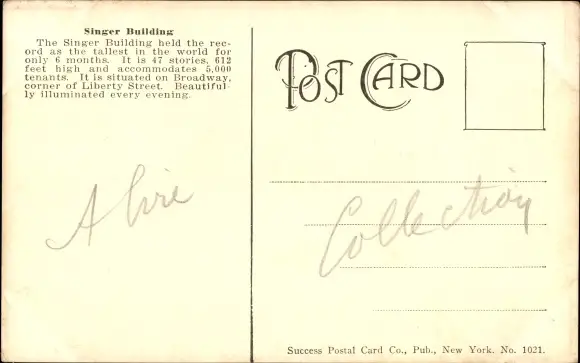 Singer Building
The Singer Building held the rec-
ord as the tallest in the world for
only 6 months. It is 47 stories, 612
feet high and accommodates 5,000
tenants. It is situated on Broadway,
corner of Liberty Street. Beautiful-
ly illuminated every evening.
POST CARD
Collection
Success Postal Card Co., Pub., New York. No. 1021.